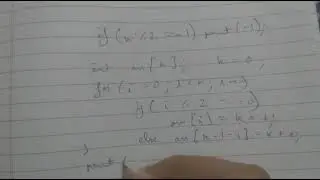 if (n % 2 == 1) print(-1);
int arr[n]; k = 0,
for (i = 0, i < n, i++)
if (i % 2 == 0)
arr[i] = k++;
else arr[n-1-i] = k++;
}
print (